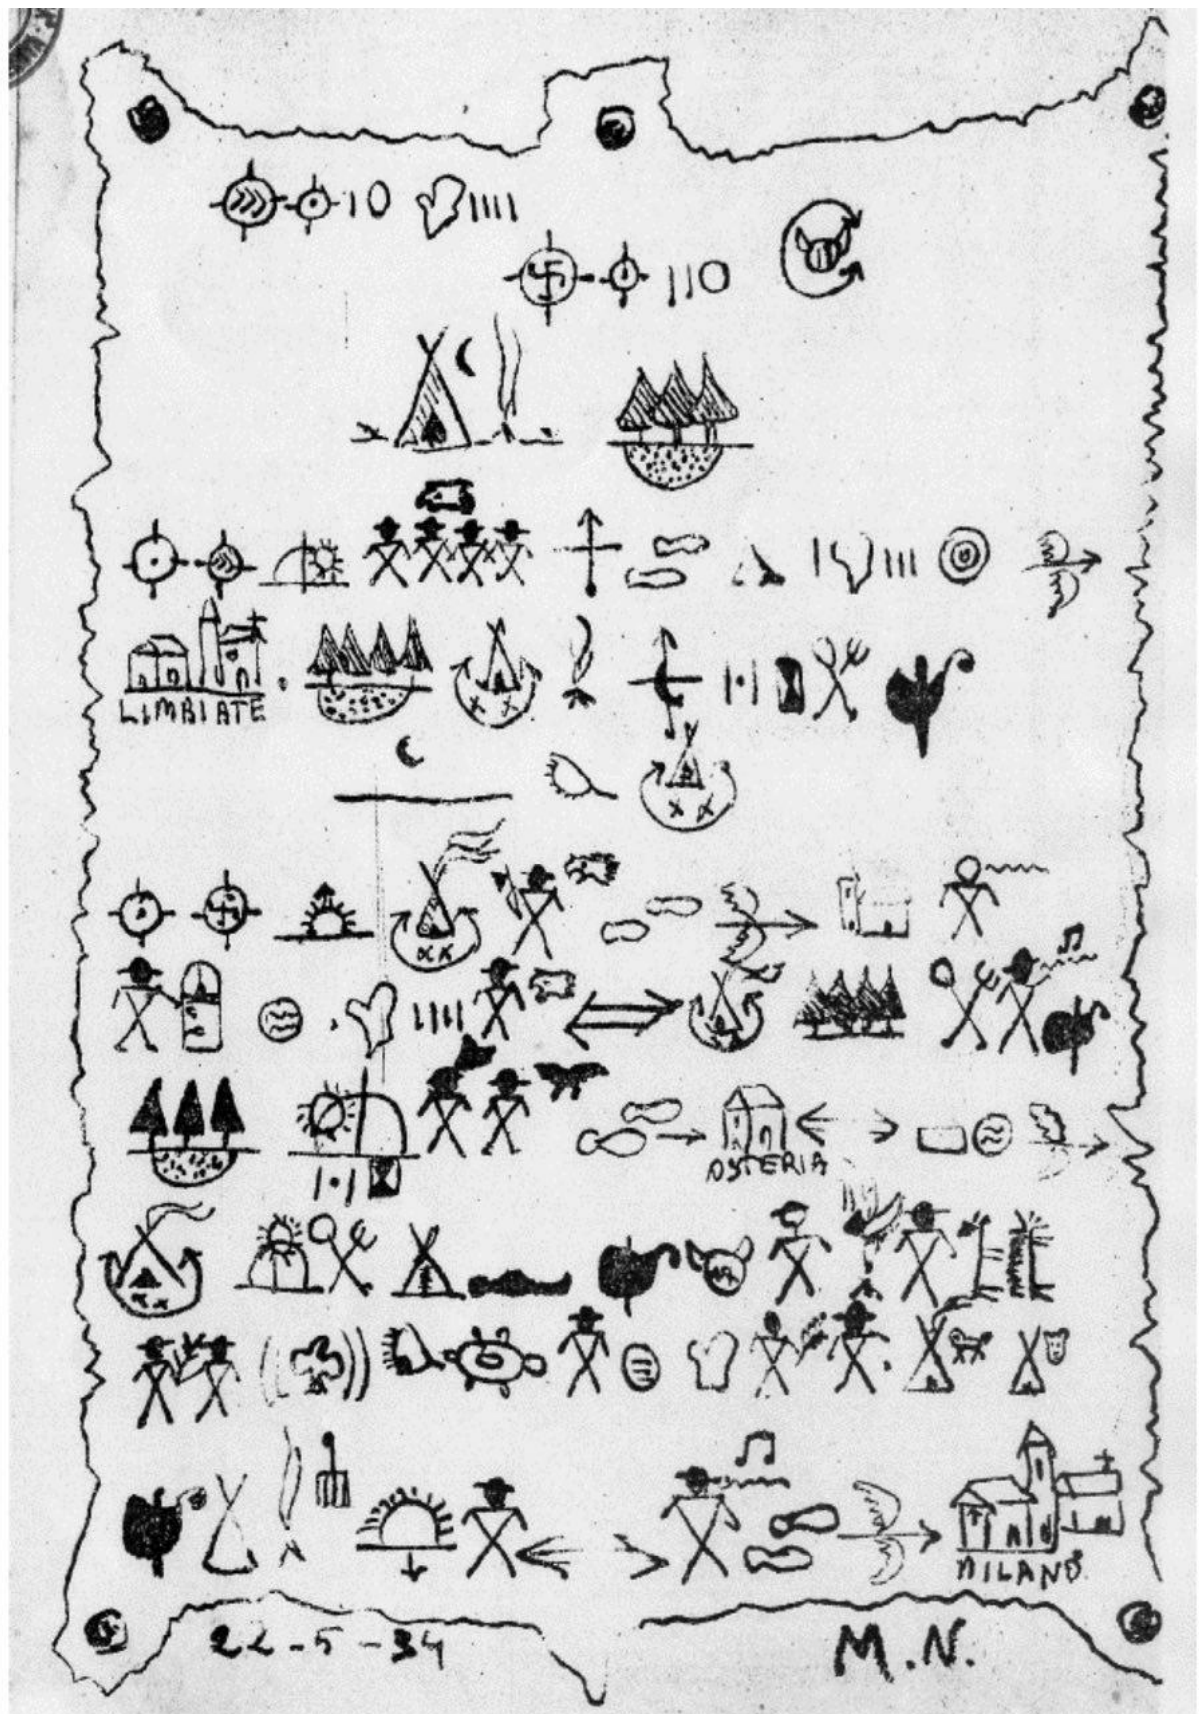 10 IIII
110
LIMBIATE
OSTERIA
MILANO
22-5-34
M.N.